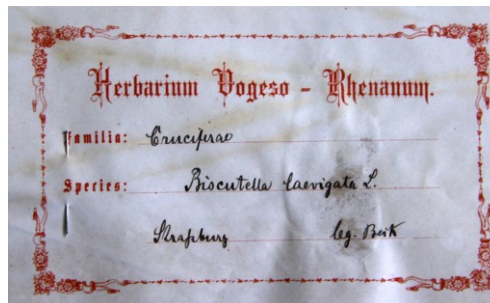 Herbarium Vogeso - Rhenanum.
Familia: Cruciferae
Species: Biscutella laevigata L.
Straßburg leg. Beik